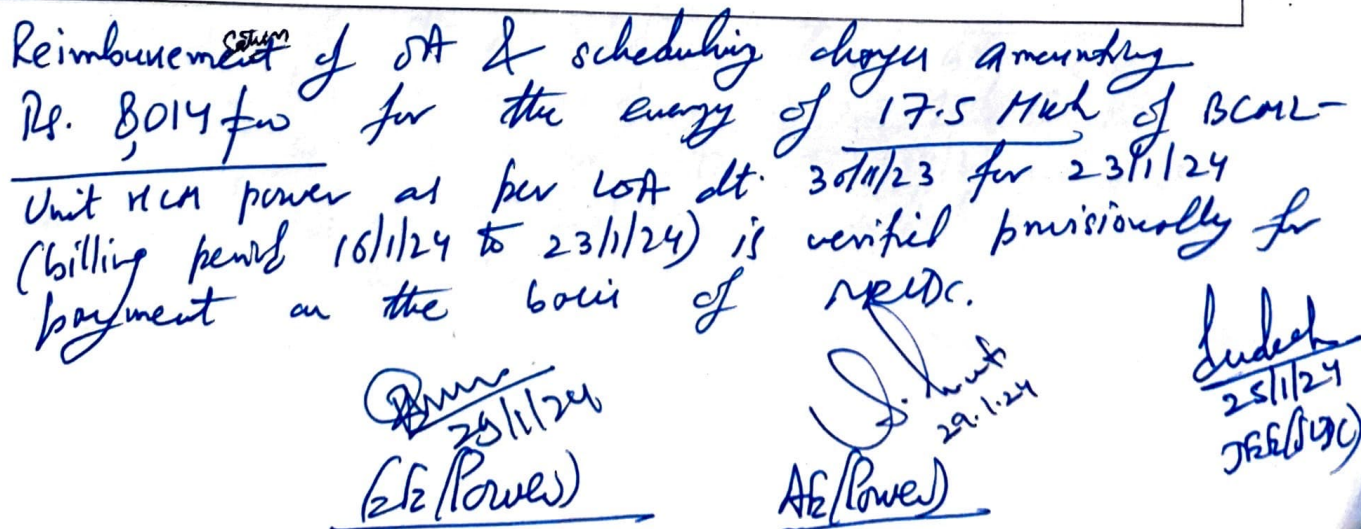 Reimbursement of OA & scheduling charges amounting
Rs. 8,014 for the energy of 17.5 Mwh of BCML-
Unit HCM power as per LOA dt. 30/11/23 for 23/1/24
(billing period 16/1/24 to 23/1/24) is verified provisionally for
payment on the basis of NRLDC.
29/1/24
EE (Power)
29.1.24
AE (Power)
25/1/24
JEE (SLDC)